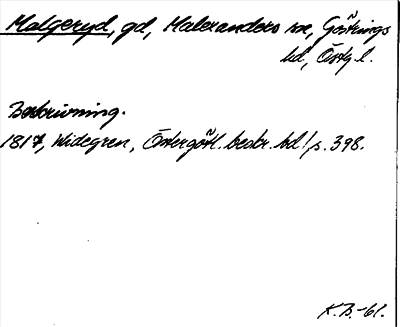 Malgeryd, gd, Malexanders sn, Göstrings
hd, Östg l.
Beskrivning.
1817, Widegren, Östergötl. beskr. bd 1 p. 398.
K.B.-61.